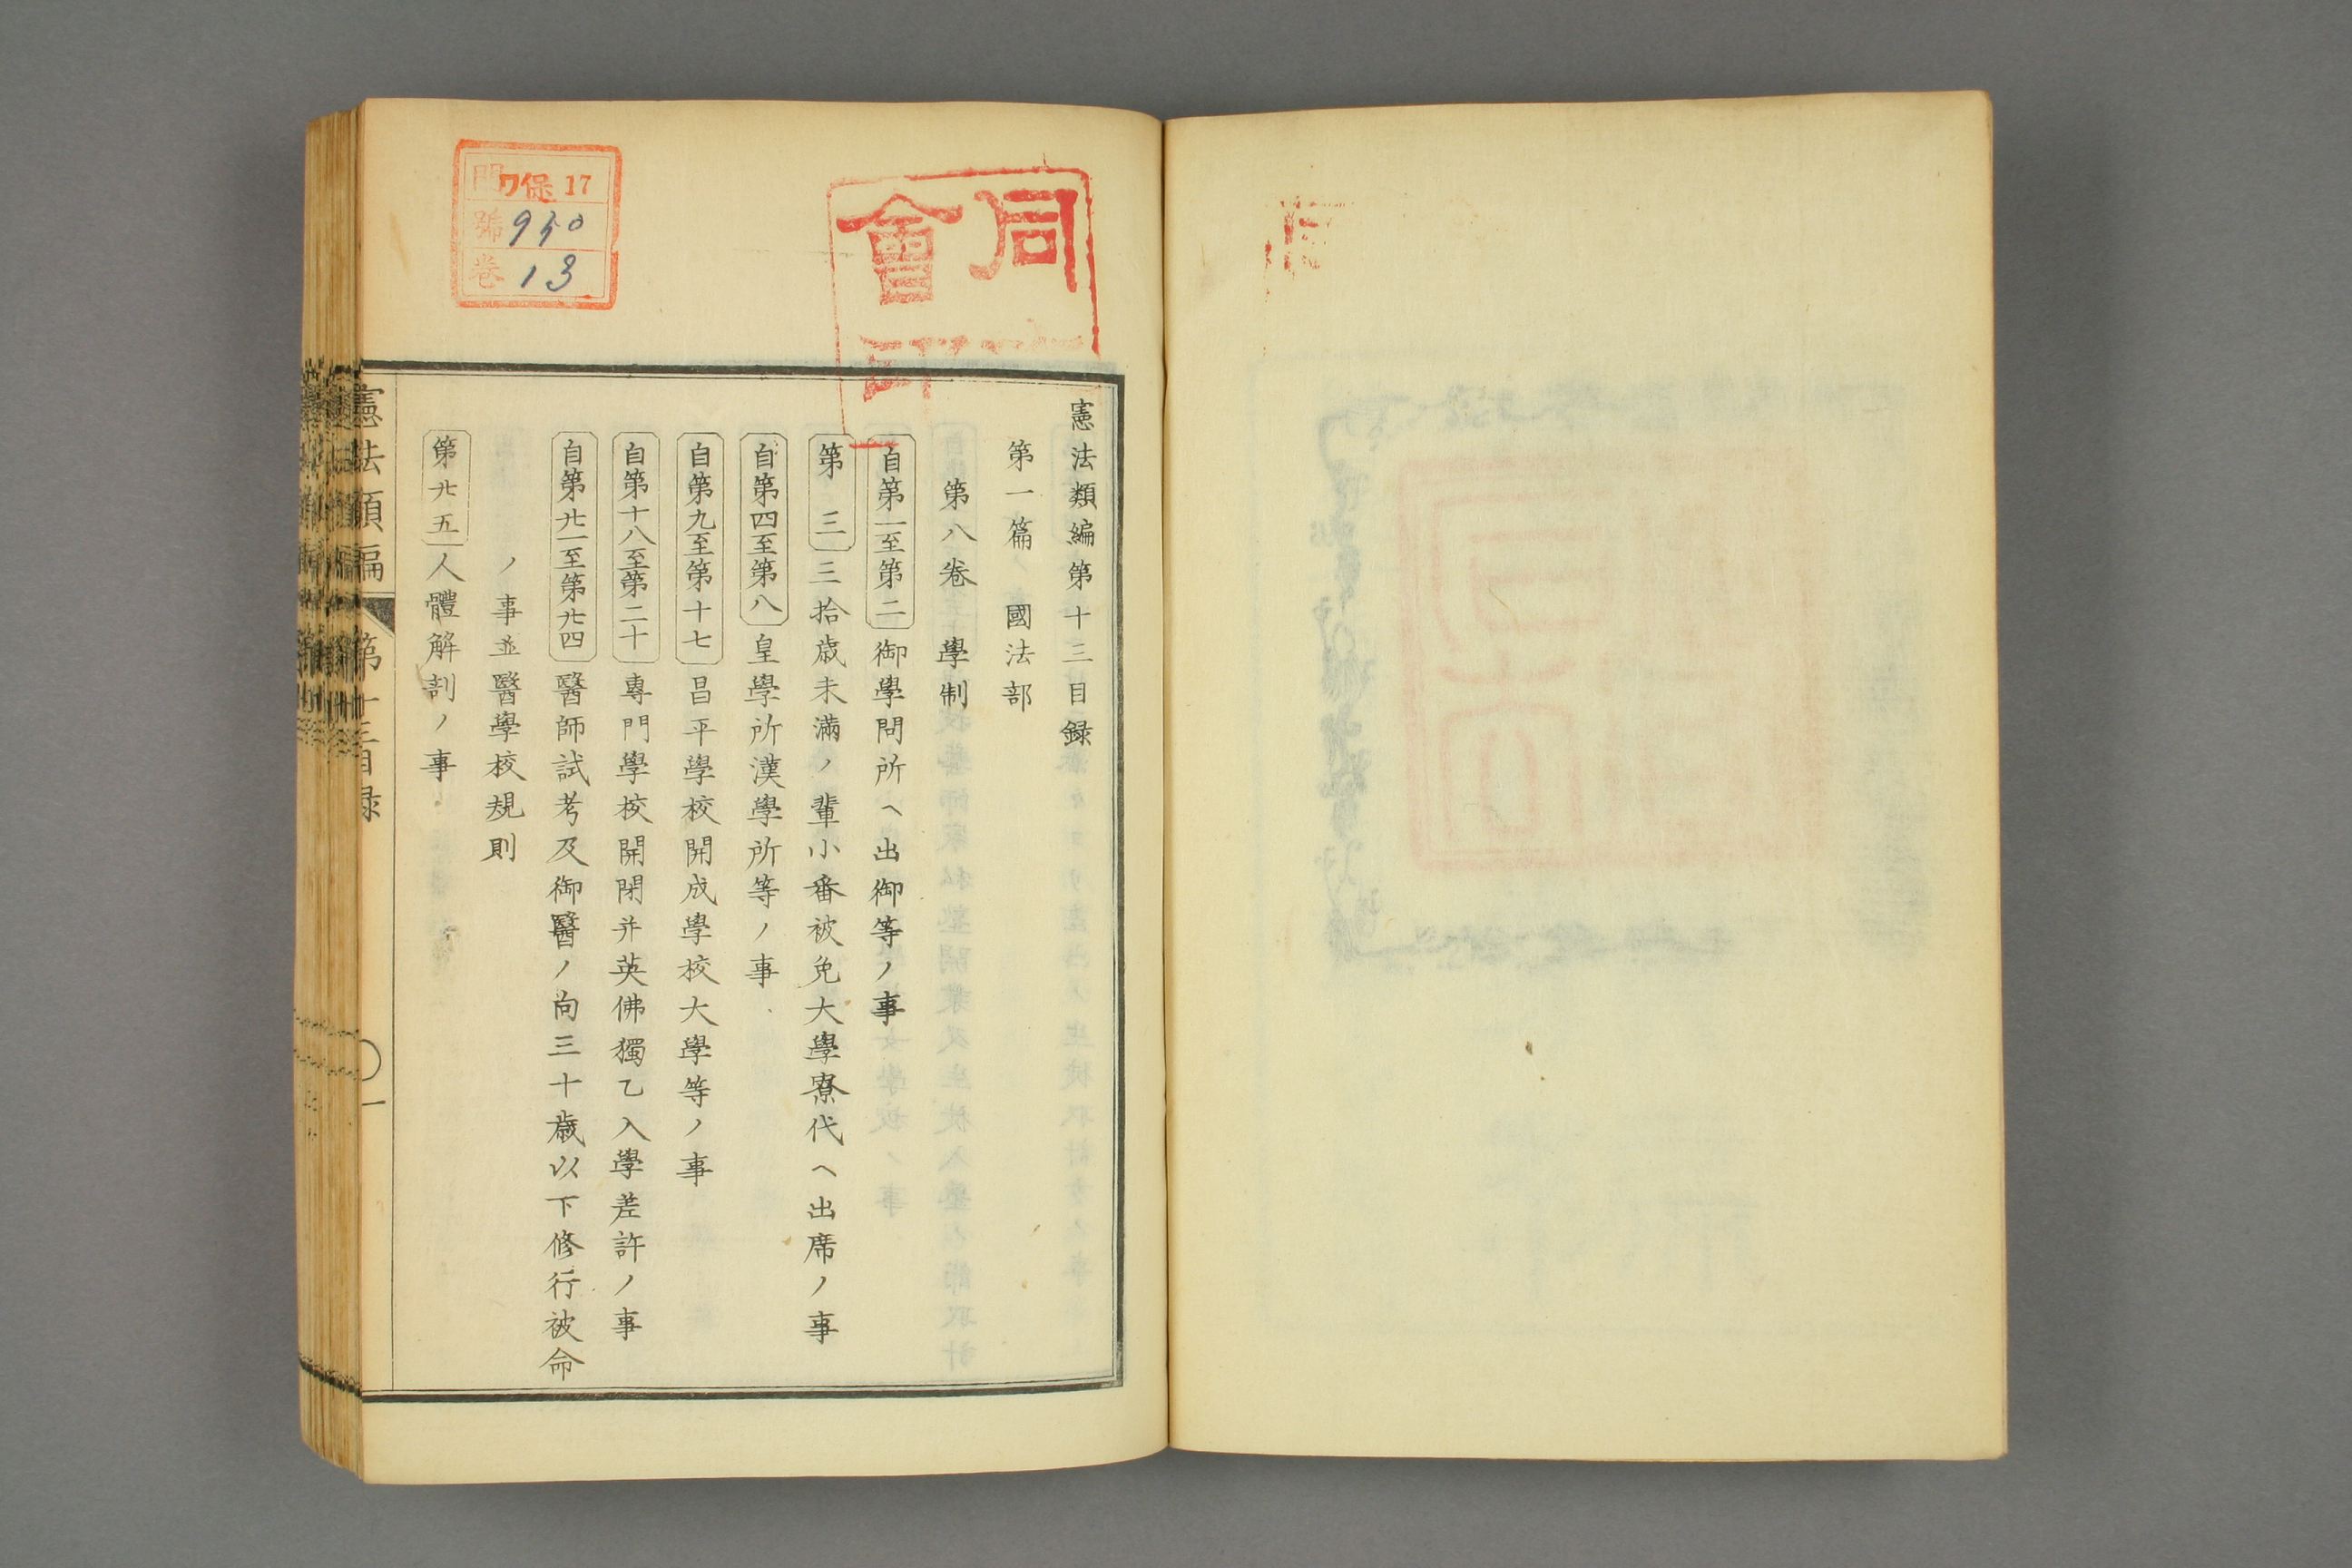 憲法類編第十三目録
第一篇 國法部
第八卷 學制
自第一至第二 御學問所ヘ出御等ノ事
第三 三拾歳未滿ノ輩小番被免大學寮代ヘ出席ノ事
自第四至第八 皇學所漢學所等ノ事
自第九至第十七 昌平學校開成學校大學等ノ事
自第十八至第二十 專門學校開閉并英佛獨乙入學差許ノ事
自第廿一至第廿四 醫師試考及御醫ノ向三十歳以下修行被命
ノ事並醫學校規則
第廿五 人體解剖ノ事
憲法類編 第十三目録 一
門 ワ保17
號 950
卷 13
同
會
印